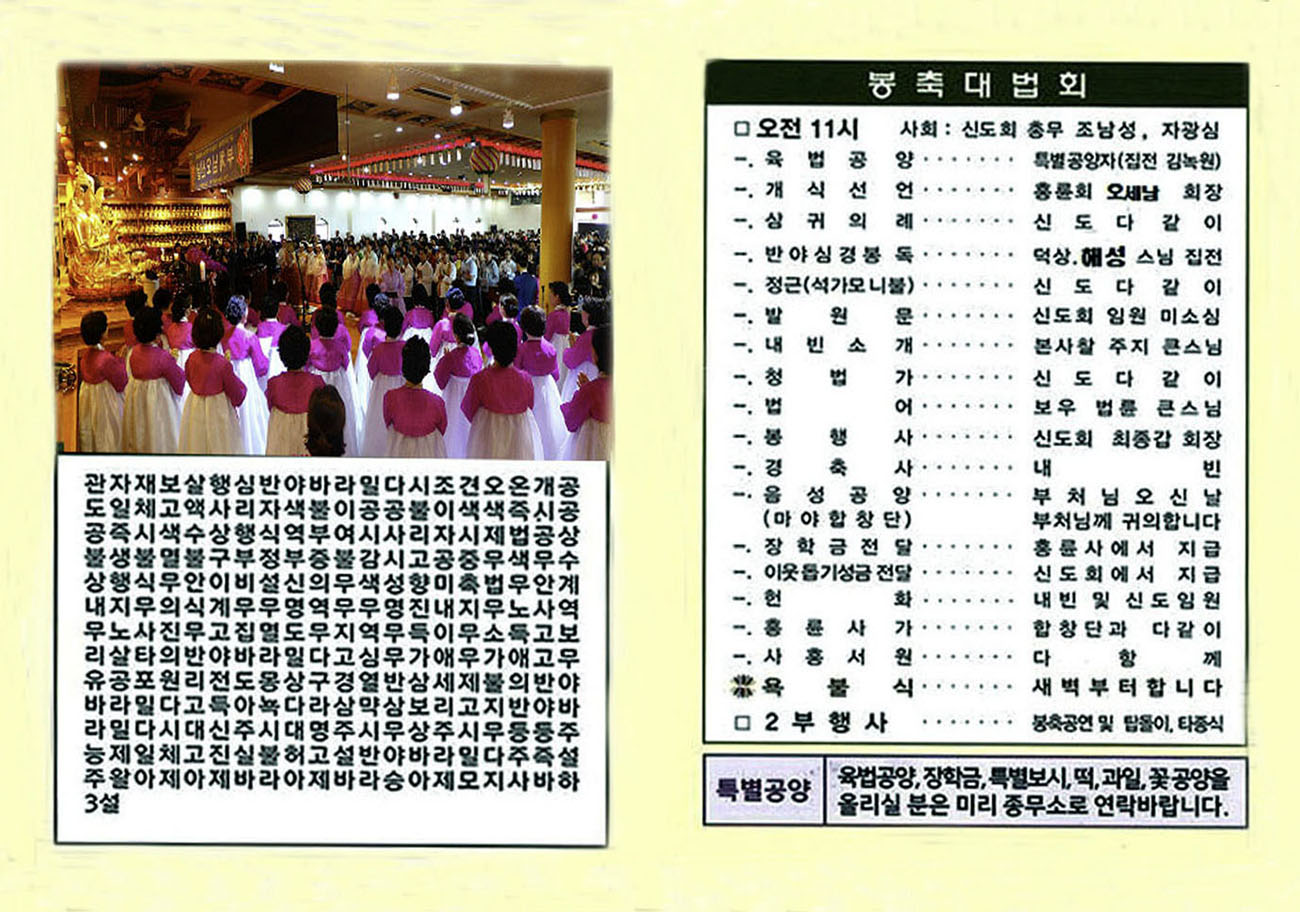 관자재보살행심반야바라밀다시조견오온개공
도일체고액사리자색불이공공불이색색즉시공
공즉시색수상행식역부여시사리자시제법공상
불생불멸불구부정부증불감시고공중무색무수
상행식무안이비설신의무색성향미촉법무안계
내지무의식계무무명역무무명진내지무노사역
무노사진무고집멸도무지역무득이무소득고보
리살타의반야바라밀다고심무가애무가애고무
유공포원리전도몽상구경열반삼세제불의반야
바라밀다고득아뇩다라삼먁삼보리고지반야바
라밀다시대신주시대명주시무상주시무등등주
능제일체고진실불허고설반야바라밀다주즉설
주왈아제아제바라아제바라승아제모지사바하
3설
봉축대법회
□ 오전 11시 사회 : 신도회 총무 조남성, 자광심
-. 육법공양 ······· 특별공양자(집전 김녹원)
-. 개식선언 ······· 홍륜회 오세남 회장
-. 삼귀의례 ······· 신도다같이
-. 반야심경봉독 ······· 덕상.해성 스님 집전
-. 정근(석가모니불) ······· 신도다같이
-. 발원문 ······· 신도회 임원 미소심
-. 내빈소개 ······· 본사찰 주지 큰스님
-. 청법가 ······· 신도다같이
-. 법어 ······· 보우 법륜 큰스님
-. 봉행사 ······· 신도회 최종갑 회장
-. 경축사 ······· 내빈
-. 음성공양 ······· 부처님오신날
(마야합창단) 부처님께 귀의합니다
-. 장학금전달 ······· 홍륜사에서 지급
-. 이웃돕기성금 전달 ······· 신도회에서 지급
-. 헌화 ······· 내빈 및 신도임원
-. 홍륜사가 ······· 합창단과 다같이
-. 사홍서원 ······· 다함께
※ 욕불식 ······· 새벽부터합니다
□ 2부행사 ······· 봉축공연 및 탑돌이, 타종식
특별공양
육법공양, 장학금, 특별보시, 떡, 과일, 꽃 공양을
올리실 분은 미리 종무소로 연락바랍니다.